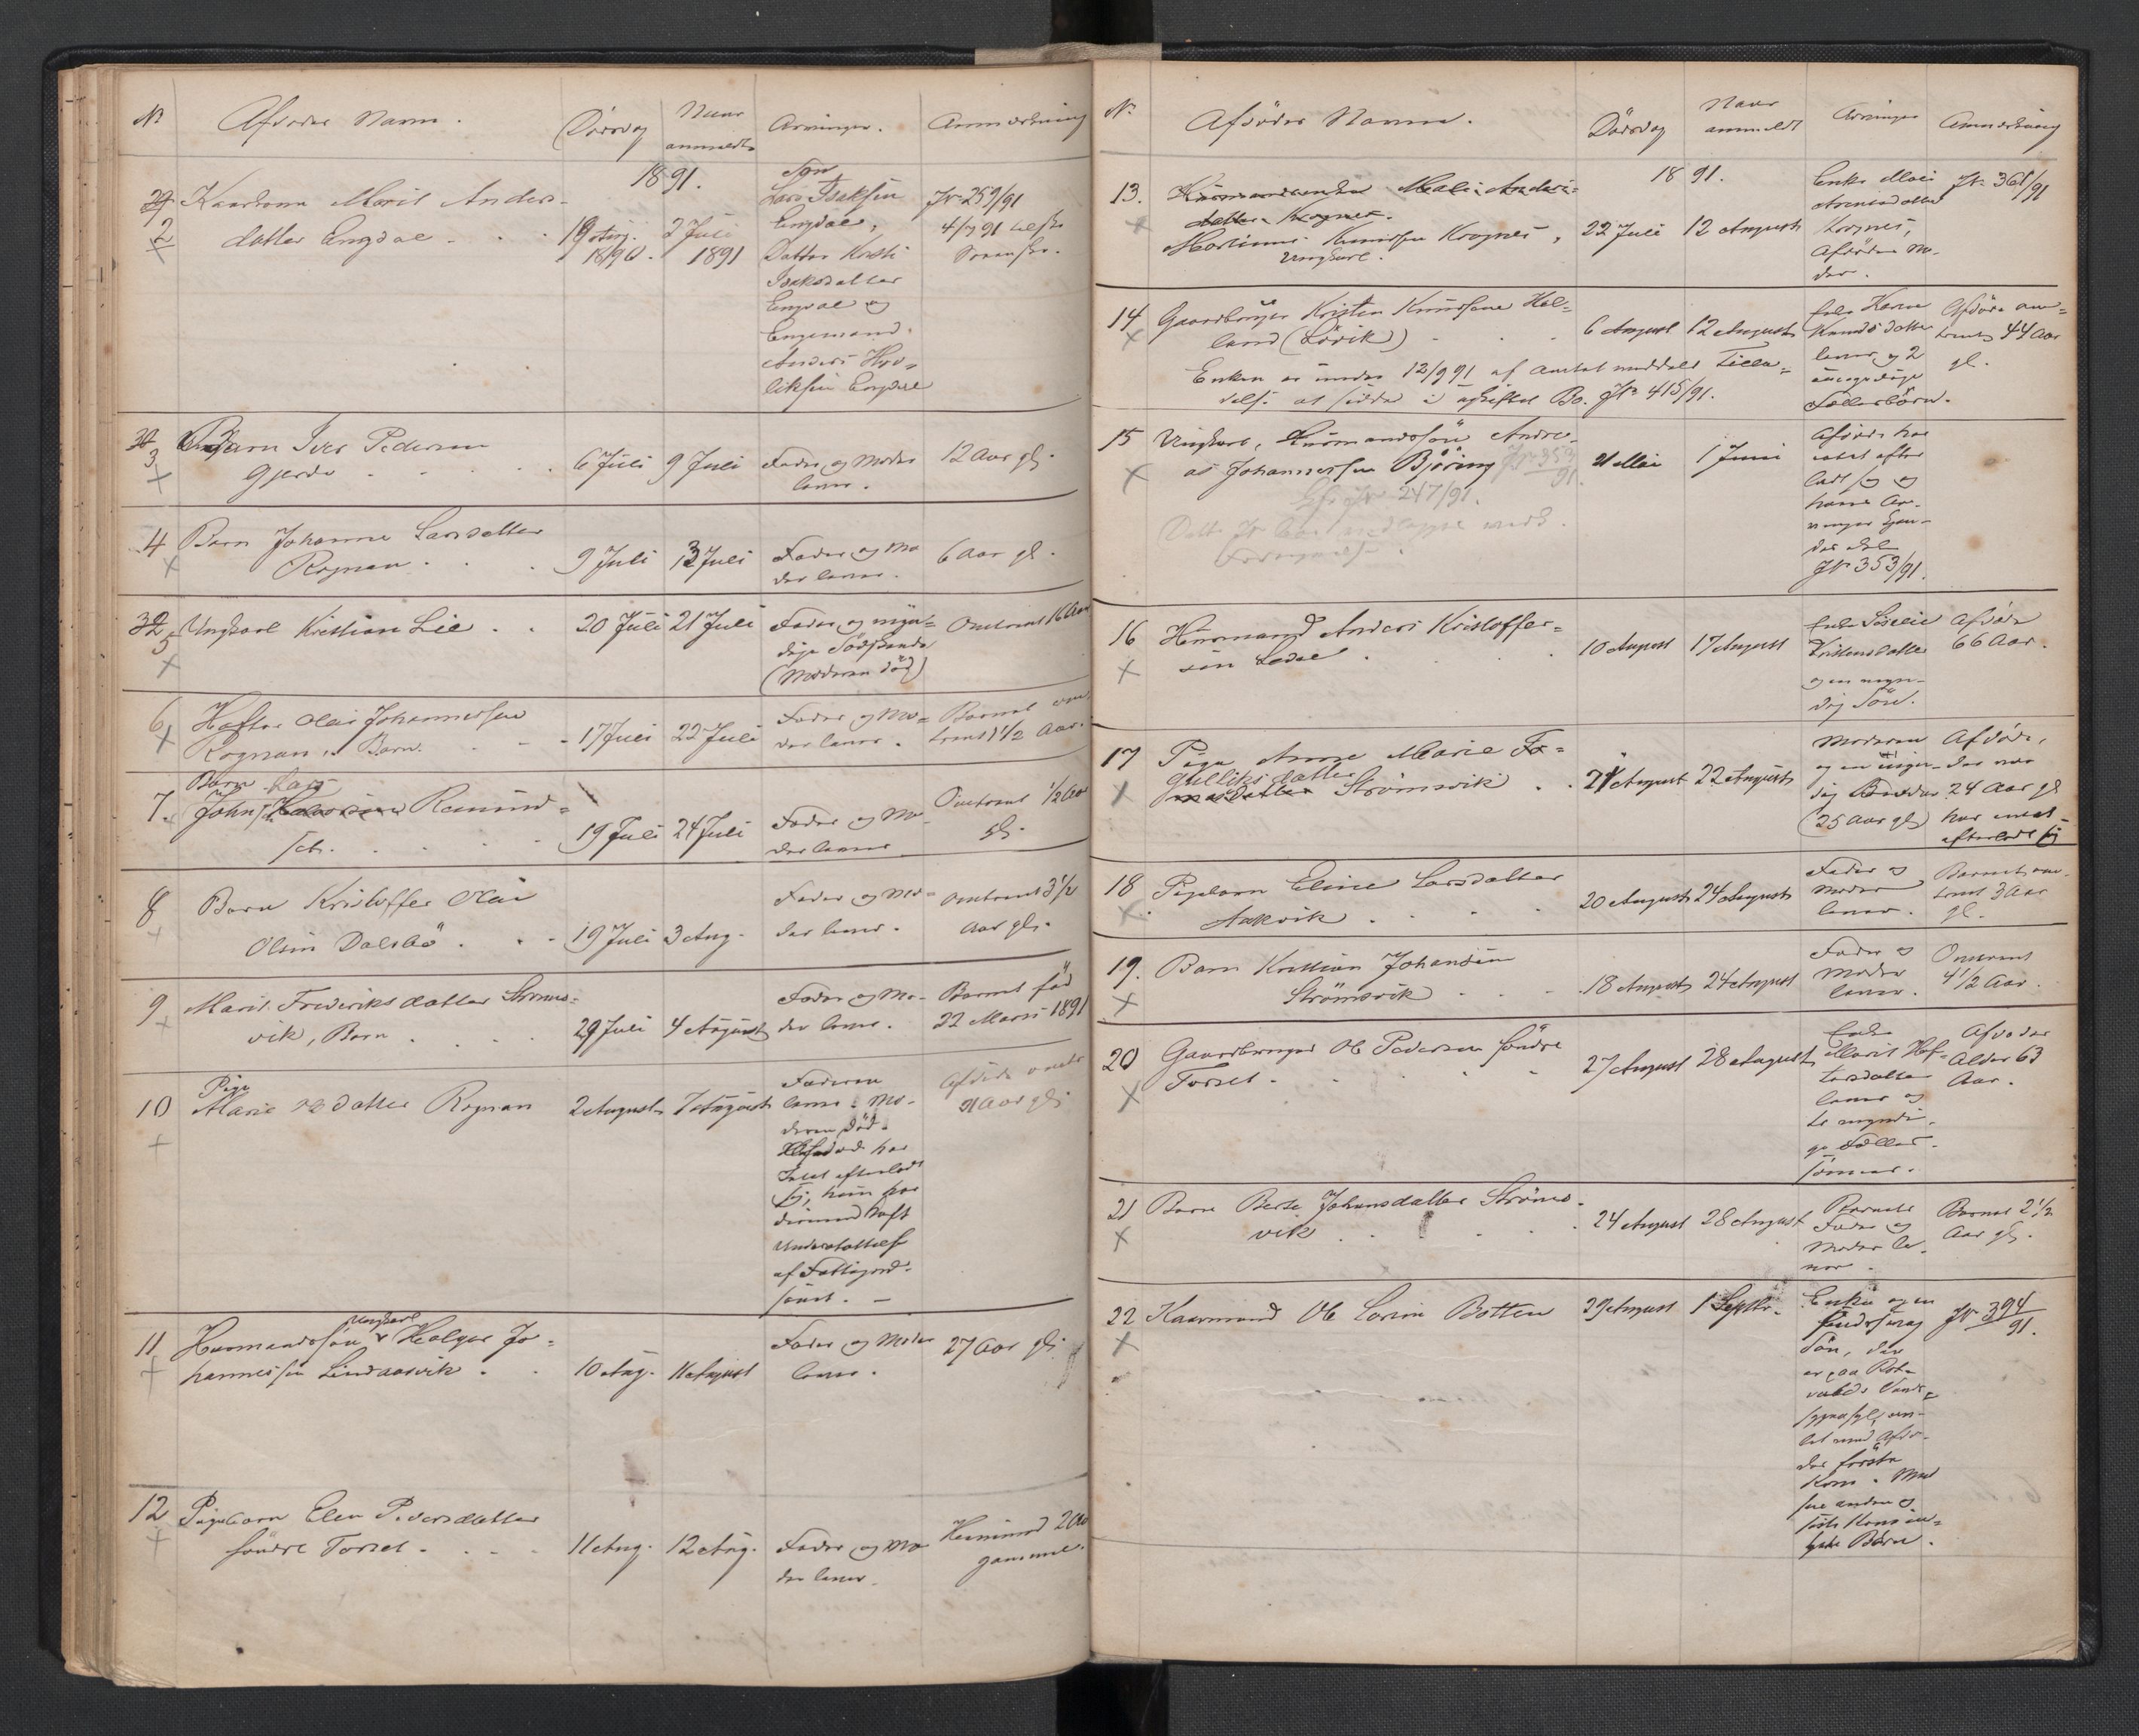 No
Afdødes Navn.
Dødsdag
Naar
anmeldt
Arvinger.
Anmærkning
1891.
2
Kaarkone Marit Anders-
datter Engdal
19 
18/90.
2 Juli
1891
Søn
Lars Isaksen
Engdal,
Datter Kirsti
Isaksdatter
Engdal og
Engemand
Anders
Engdal
Jr. 259/91
4/7 91
3
Barn Iver Pedersen
Gjerde
6 Juli
9 Juli
Fader og Moder
lever.
12 Aar gl.
4
Barn Johanne Larsdatter
Rognan
9 Juli
13 Juli
Fader og Mo
der lever.
6 Aar gl.
5
Ungkarl Kristian Lie
20 Juli
21 Juli
Fader og myn-
dige Sødskende
(Moderen død)
Omtrent 16 Aar
6
Haftor Olai Johannessen
Rognan, Barn.
17 Juli
22 Juli
Fader og Mo-
der lever.
Barnet om-
trent 1 1/2 Aar.
7.
Barn Lars
John Remind-
set.
19 Juli
24 Juli
Fader og Mo-
der lever
Omtrent 1/2 Aar
gl.
8
Barn Kristoffer Olai
Olsen Dalsbø
19 Juli
3 Aug.
Fader og Mo-
der lever.
Omtrent 3 1/2
Aar gl.
9
Marit Frederiksdatter Strøms-
vik, Barn
29 Juli
4 August
Fader og Mo-
der lever.
Barnet fød
22 Marts 1891
10
Pige
Marie Olsdatter Rognan
2 August
7 August
Faderen
lever. Mo-
deren død.
Afdøde har
Intet efterladt
sig, hun har
derimod haft
Understøttelse
af Fattigvæ-
senet.
Afdøde
21 Aar gl.
11
Ungkarl
Husmandssøn Holger Jo-
hannessen Lindaasvik
10 Aug.
11 August
Fader og Moder
lever.
27 Aar gl.
12
Pigebarn Elen Pedersdatter
søndre Torset
11 Aug.
12 Aug.
Fader og Mo
der lever.
Henimod 2 Aar
gammel.
No
Afdødes Navn.
Dødsdag
Naar
anmeldt
Arvinger
Anmærkning
1891.
13.
Husmandsenke Mali Anders-
datter Krognes.
Marinus Knudsen Krognes,
Ungkarl.
22 Juli
12 August
Enke Mali
Arentsdatter
Krognes,
Afdødes Mo-
der.
Jr. 361/91
14
Gaardbruger Kristen Knudsen Hal-
land (Løvik)
6 August
12 August
Enke Karen
Knudsdatter
lever og 2
umyndige
Fællesbørn.
Afdøde om-
trent 44 Aar
gl.
Enken er under 12/9 91 af Amtet meddelt Tilla-
delse at sidde i uskiftet Bo. Jr. 415/91.
15
Ungkarl, Husmandssøn Andre-
as Johannessen Bjøring Jr. 353/91
21 Mai
1 Juni
Afdøde har
intet efter
ladt sig og
hans Ar-
vinger
Jr 353/91.
Jr 247/91.
16
Husmand Anders Kristoffer-
sen Lødal
10 August
17 August
Enke
Kristensdatter
og en myn-
dig Søn.
Afdøde
66 Aar.
17
Pige Anne Marie To-
Gulliksdatter
masdatter Strømsvik
21 August
22 August
Moderen
og en myn-
dig Broder
(25 Aar gl)
Afdøde,
der var
24 Aar gl
har intet
efterladt sig
18
Pigebarn Eline Larsdatter
Aakvik
20 August
24 August
Fader og
Moder
lever.
Barnet om-
trent 3 Aar
gl.
19.
Barn Kristian Johansen
Strømsvik
18 August
24 August
Fader og
Moder
lever.
Omtrent
4 1/2 Aar.
20
Gaardbruger Ole Pedersen søndre
Torset
27 August
28 August
Enke
Marit Haf-
torsdatter
lever og
to myndi-
ge Fælles-
sønner.
Afdødes
Alder 63
Aar.
21
Barn Berte Johansdatter Strøms-
vik
24 August
28 August
Barnets
Fader og
Moder le-
ver.
Barnet 2 1/2
Aar gl.
22
Kaarmand Ole Larsen Botten
29 August
1 Septbr.
Enke og en
sindssvag
Søn, der
er paa Rot-
volds Sinds-
sygeasyl, av-
let med Afdø-
des første
Kone. Med
sin anden og
sidste Kone in-
gen Børn.
Jr 394/91.